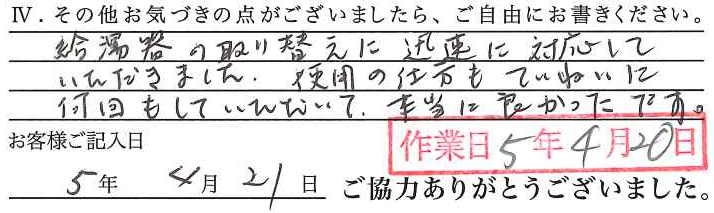 Ⅳ．その他お気づきの点がございましたら、ご自由にお書きください。
給湯器の取り替えに迅速に対応して
いただきました. 使用の仕方もていねいに
何回もしていただいて. 本当に良かったです。
お客様ご記入日
作業日5年4月20日
5年 4月21日 ご協力ありがとうございました。